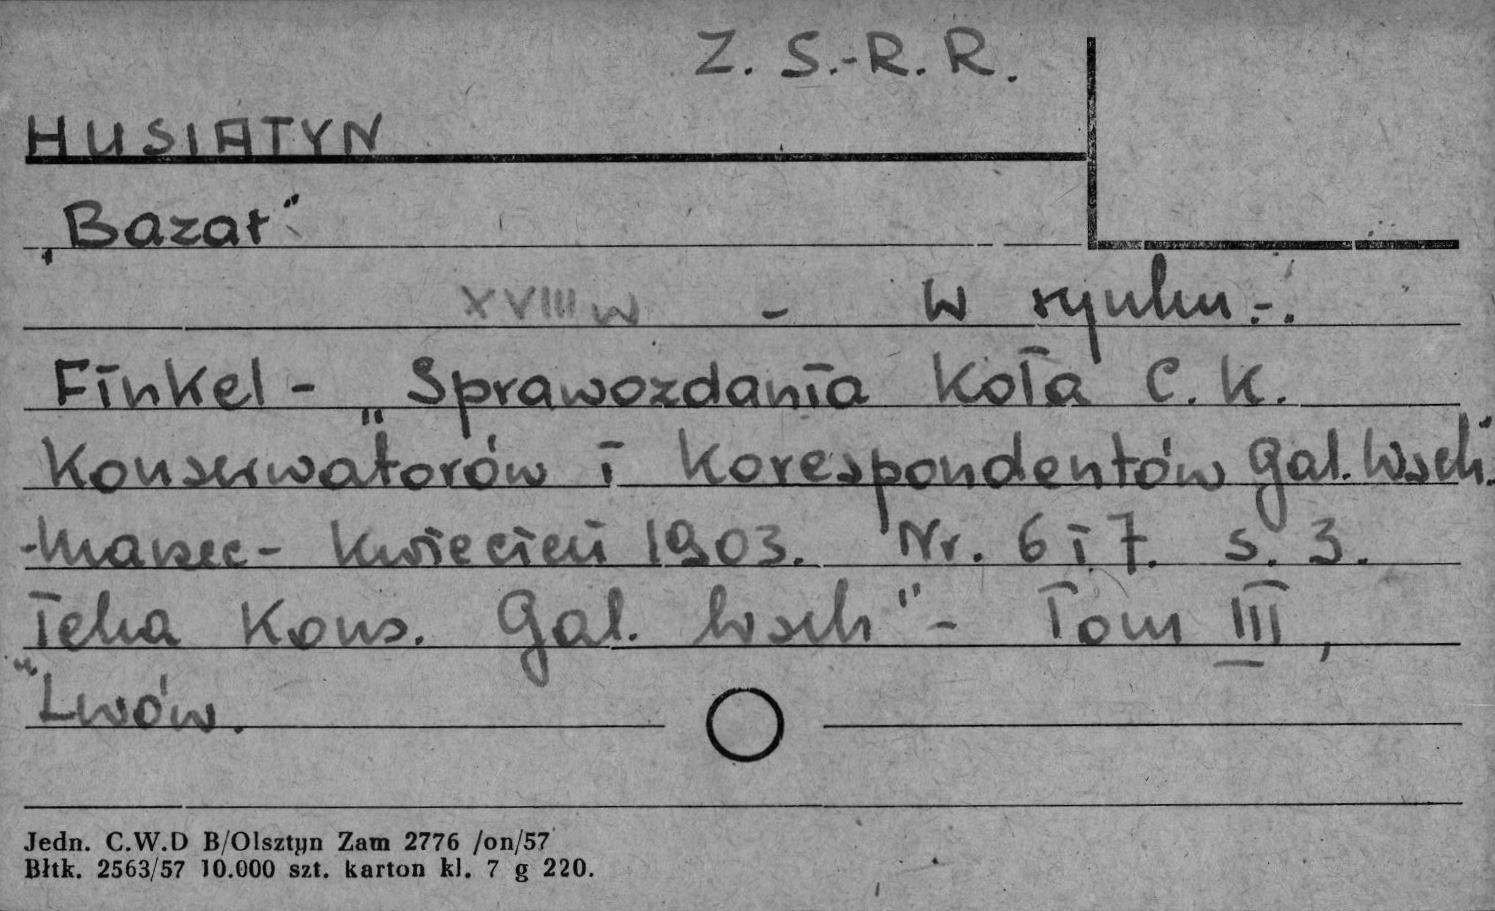 Z. S.-R. R.
HUSIATYN
„Bazar"
XVIII w - w rynku.-.
Finkel - „Sprawozdania Koła C. K.
Konserwatorów i Korespondentów Gal. Wsch."
- marzec - kwiecień 1903. Nr. 6 i 7. s. 3.
„Teka Kons. Gal. Wsch" - Tom III,
Lwów.
Jedn. C.W.D B/Olsztyn Zam 2776 /on/57
Błtk. 2563/57 10.000 szt. karton kl. 7 g 220.